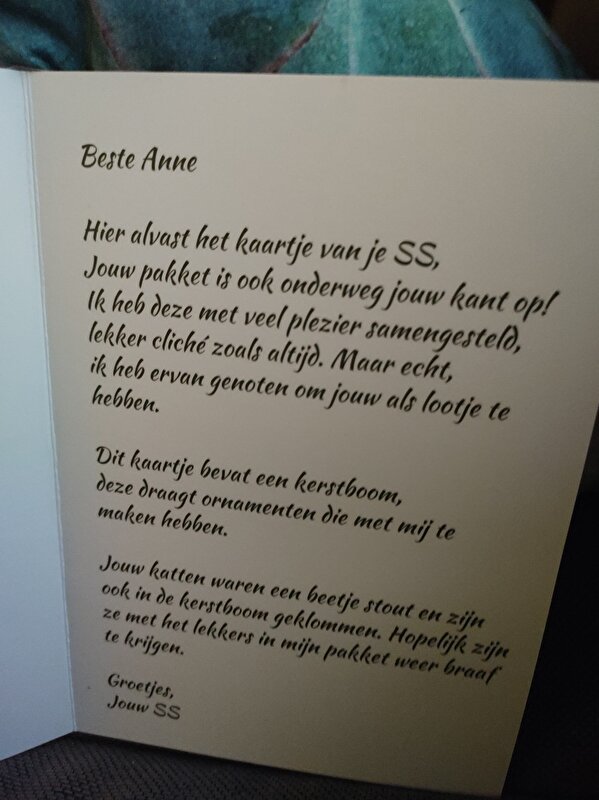 Beste Anne
Hier alvast het kaartje van je SS,
Jouw pakket is ook onderweg jouw kant op!
Ik heb deze met veel plezier samengesteld,
lekker cliché zoals altijd. Maar echt,
ik heb ervan genoten om jouw als lootje te
hebben.
Dit kaartje bevat een kerstboom,
deze draagt ornamenten die met mij te
maken hebben.
Jouw katten waren een beetje stout en zijn
ook in de kerstboom geklommen. Hopelijk zijn
ze met het lekkers in mijn pakket weer braaf
te krijgen.
Groetjes,
Jouw SS